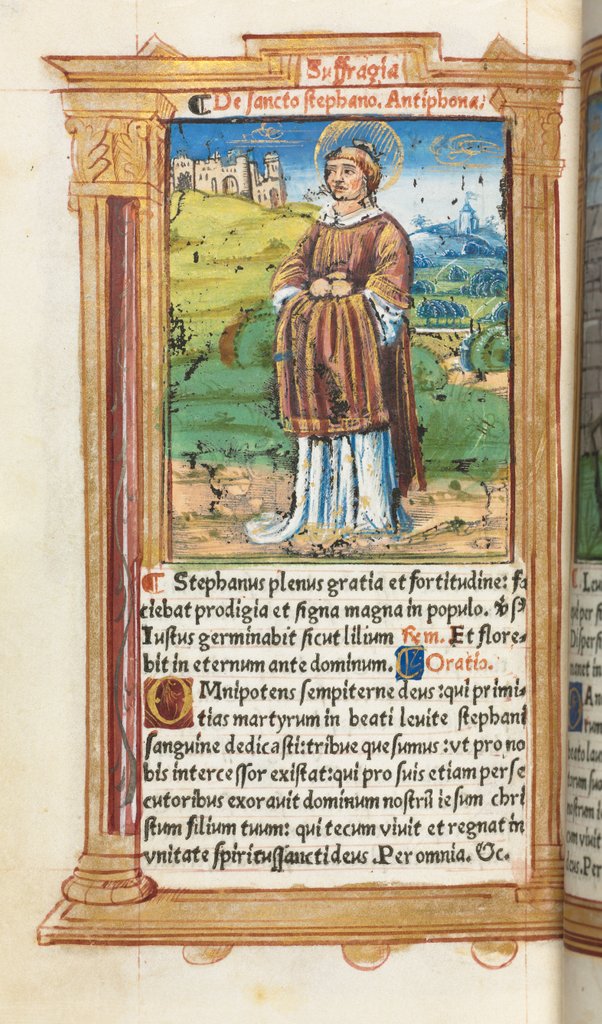 Suffragia
De sancto stephano. Antiphona:
Stephanus plenus gratia et fortitudine: fa
ciebat prodigia et signa magna in populo.
Iustus germinabit sicut lilium Rem. Et flore-
bit in eternum ante dominum. Oratio.
OMnipotens sempiterne deus: qui primi-
tias martyrum in beati leuite stephani
sanguine dedicasti: tribue quesumus: vt pro no
bis intercessor existat: qui pro suis etiam perse
cutoribus exorauit dominum nostrū iesum chri
stum filium tuum: qui tecum viuit et regnat in
vnitate spiritussancti deus. Per omnia. &c.